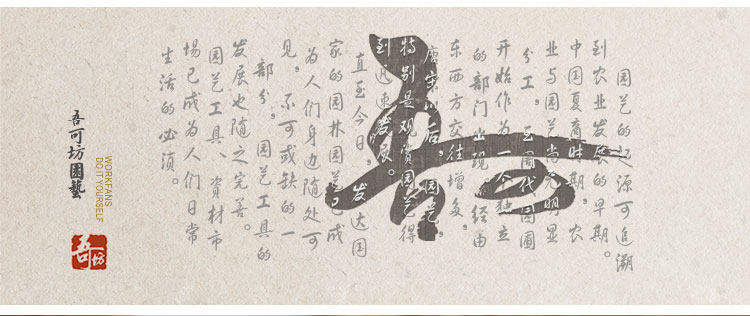 园艺的起源可追溯
到农业发展的早期。
中国夏商时期,农
业与园艺尚无明显
分工。至周代园圃
开始作为一个独立
的部门出现,经由
东西方交往增多,
唐宋以后,园艺,
特别是观赏园艺得
到迅速发展。
直至今日,发达国
家的园林园艺已成
为人们身边随处可
见,不可或缺的一
部分,园艺工具的
发展也随之完善。
园艺工具、资材市
场已成为人们日常
生活的必须。
吾
吾可坊園藝
WORKFANS
DO IT YOURSELF
吾坊